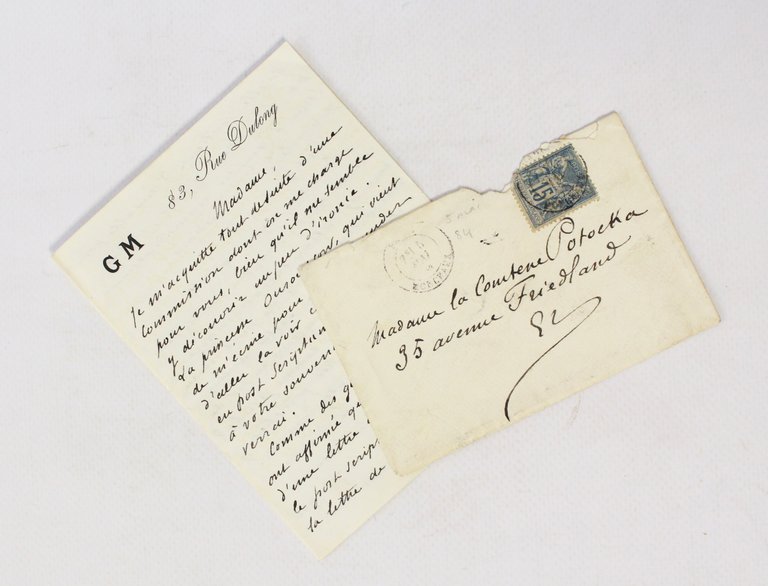 83, Rue Dulong
GM
Madame,
Je m'acquitte tout desuite d'une
commission dont on me charge
pour vous, bien qu'il me semble
y découvrir un peu d'ironie.
La princesse qui vient
de m'écrire pour
d'aller la voir
en post scriptum
à votre souvenir
verrai.
Comme des
ont affirmé
d'une lettre
le post scrip
la lettre de
15
5 mai
84
Madame la Comtesse Potocka
35 avenue Friedland